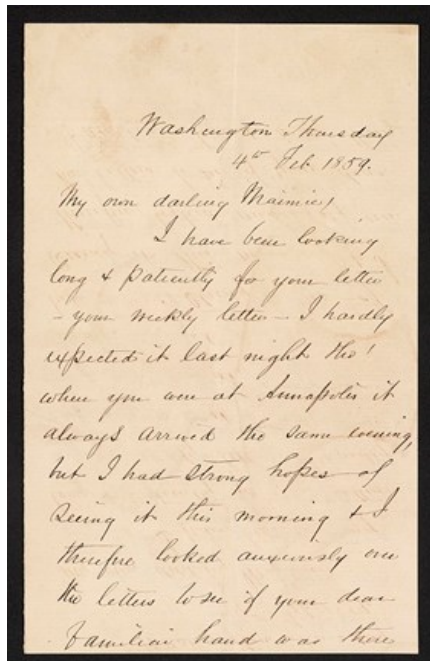 Washington Thursday
4th Feb. 1859.
My own darling Maimie,
I have been looking
long & patiently for your letter
- your weekly letter - I hardly
expected it last night tho'
when you were at Annapolis it
always arrived the same evening,
but I had strong hopes of
seeing it this morning & I
therefore looked anxiously over
the letters to see if your dear
familiar hand was there